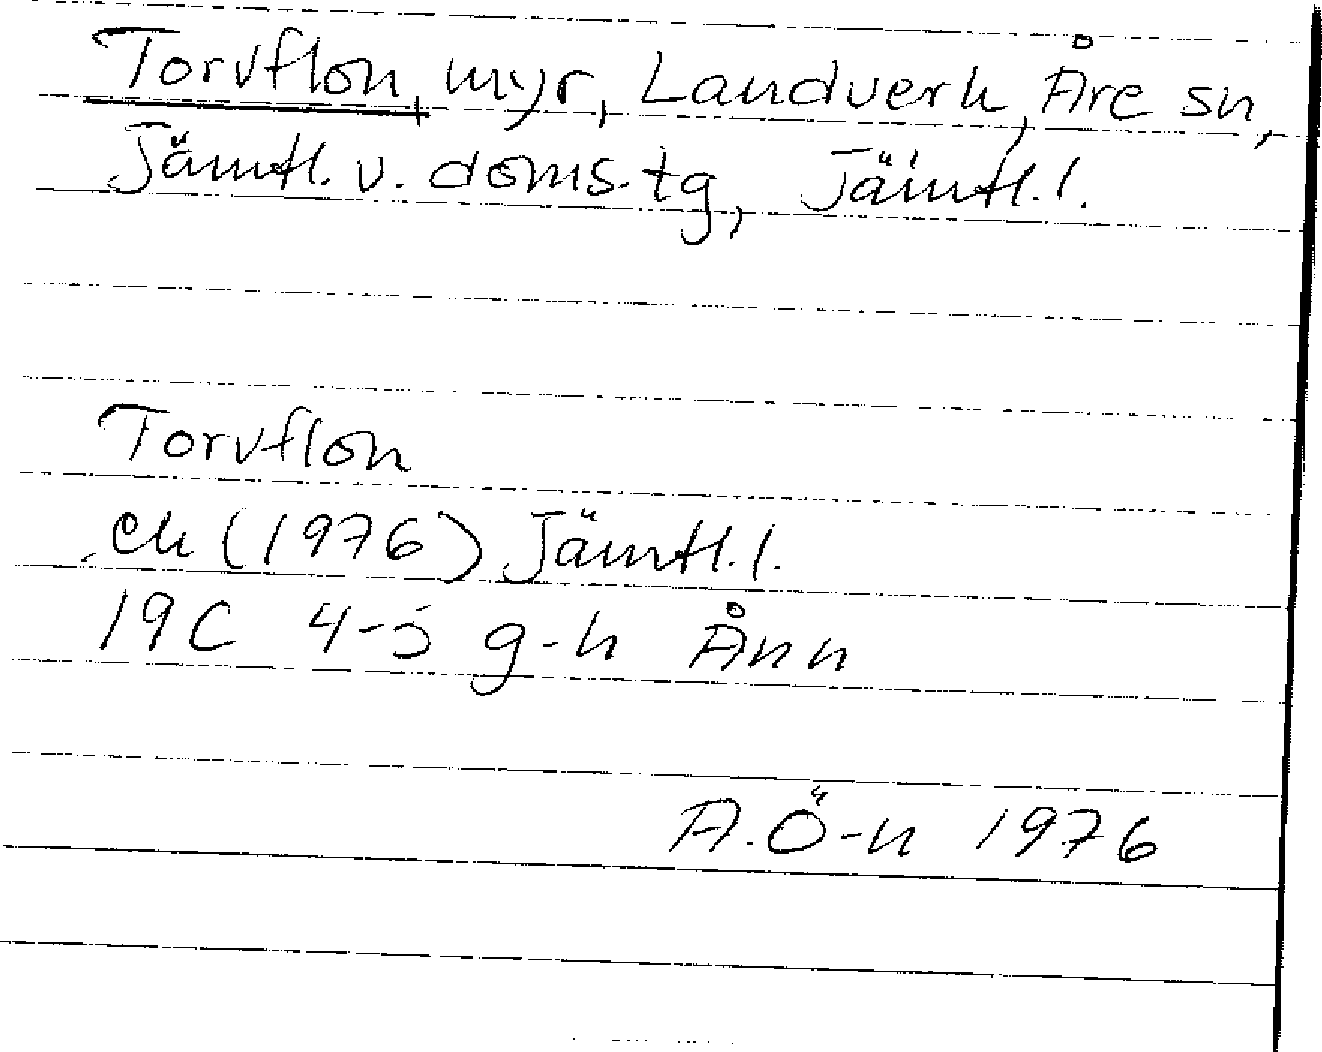 Torvflon, myr, Landverk, Åre sn,
Jämtl. v. doms. tg, Jämtl. l.
Torvflon
ek (1976) Jämtl. l.
19C 4-5 g-h Ånn
A. Ö-n 1976